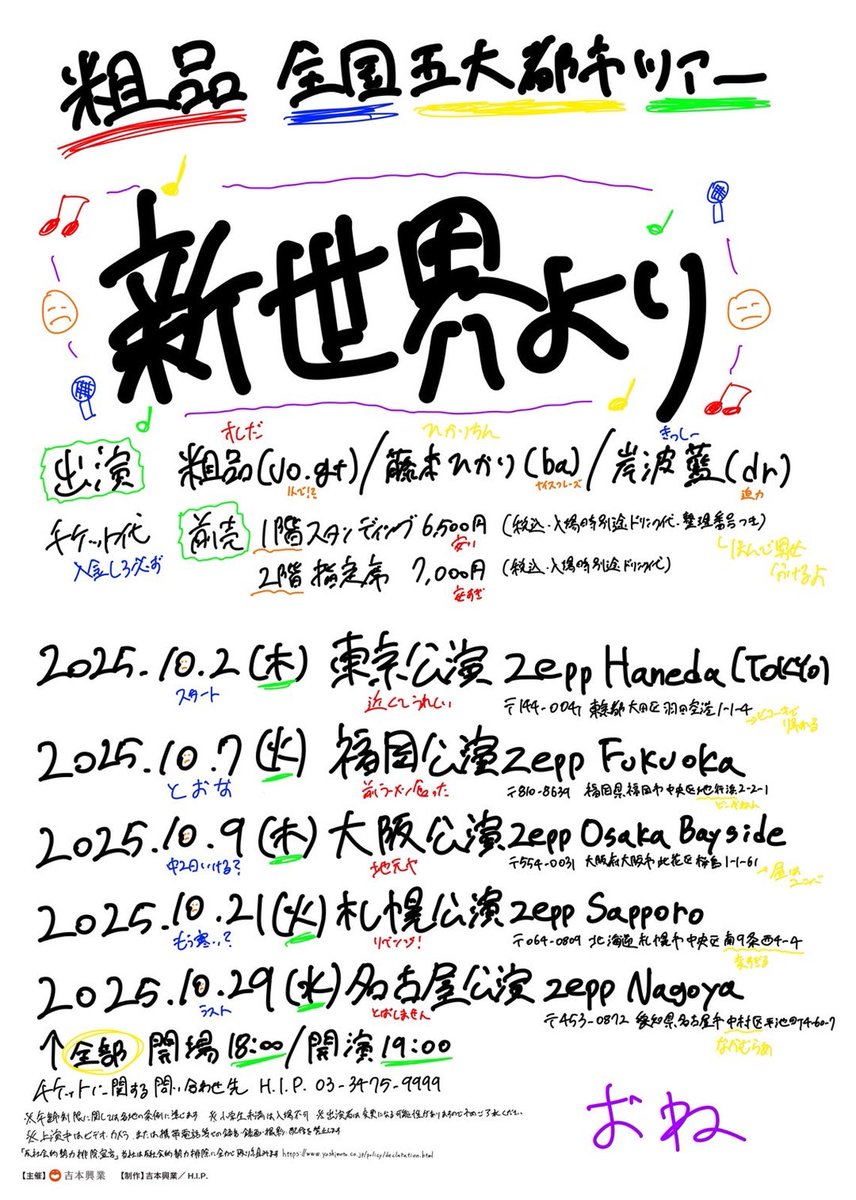 粗品 全国五大都市ツアー
新世界より
そしだ ひかりちん きっしー
出演 粗品(vo.gt)/藤本ひかり(ba)/岸波藍(dr)
なんで!? ナイスフレーズ 迫力
チケット代 前売 1階スタンディング 6,500円 (税込・入場時別途ドリンク代・整理番号つき)
入金しろ必ず 安い ほんで男女
分けるよ
2階指定席 7,000円 (税込・入場時別途ドリンク代)
安すぎ
2025.10.2(木) 東京公演 Zepp Haneda(TOKYO)
スタート 近くてうれしい 〒144-0041 東京都大田区羽田空港1-1-4
2025.10.7(火) 福岡公演 Zepp Fukuoka
とおな 前ラーメン食った 〒810-8639 福岡県福岡市中央区地行浜2-2-1
2025.10.9(木) 大阪公演 Zepp Osaka Bayside
中2日いける? 地元や 〒554-0031 大阪府大阪市此花区桜島1-1-61
昼は
2025.10.21(火) 札幌公演 Zepp Sapporo
もう寒い? リベンジ! 〒064-0809 北海道札幌市中央区南9条西4-4
2025.10.29(水) 名古屋公演 Zepp Nagoya
ラスト とばしません 〒453-0872 愛知県名古屋市中村区平池町4-60-7
なかむらあ
↑全部 開場18:00/開演19:00
チケットに関する問い合わせ先 H.I.P. 03-3475-9999
※年齢制限に関しては各地の条例に準じます ※小学生未満は入場不可 ※出演者は変更になる可能性がありますので予めご了承ください。
※上演中はビデオ・カメラ または携帯電話等での録音・録画・撮影・配信を禁止します
「反社会的勢力排除宣言」当社は反社会的勢力排除に全力で取り組みます https://www.yoshimoto.co.jp/policy/declaration.html
おね
【主催】吉本興業 【制作】吉本興業/H.I.P.